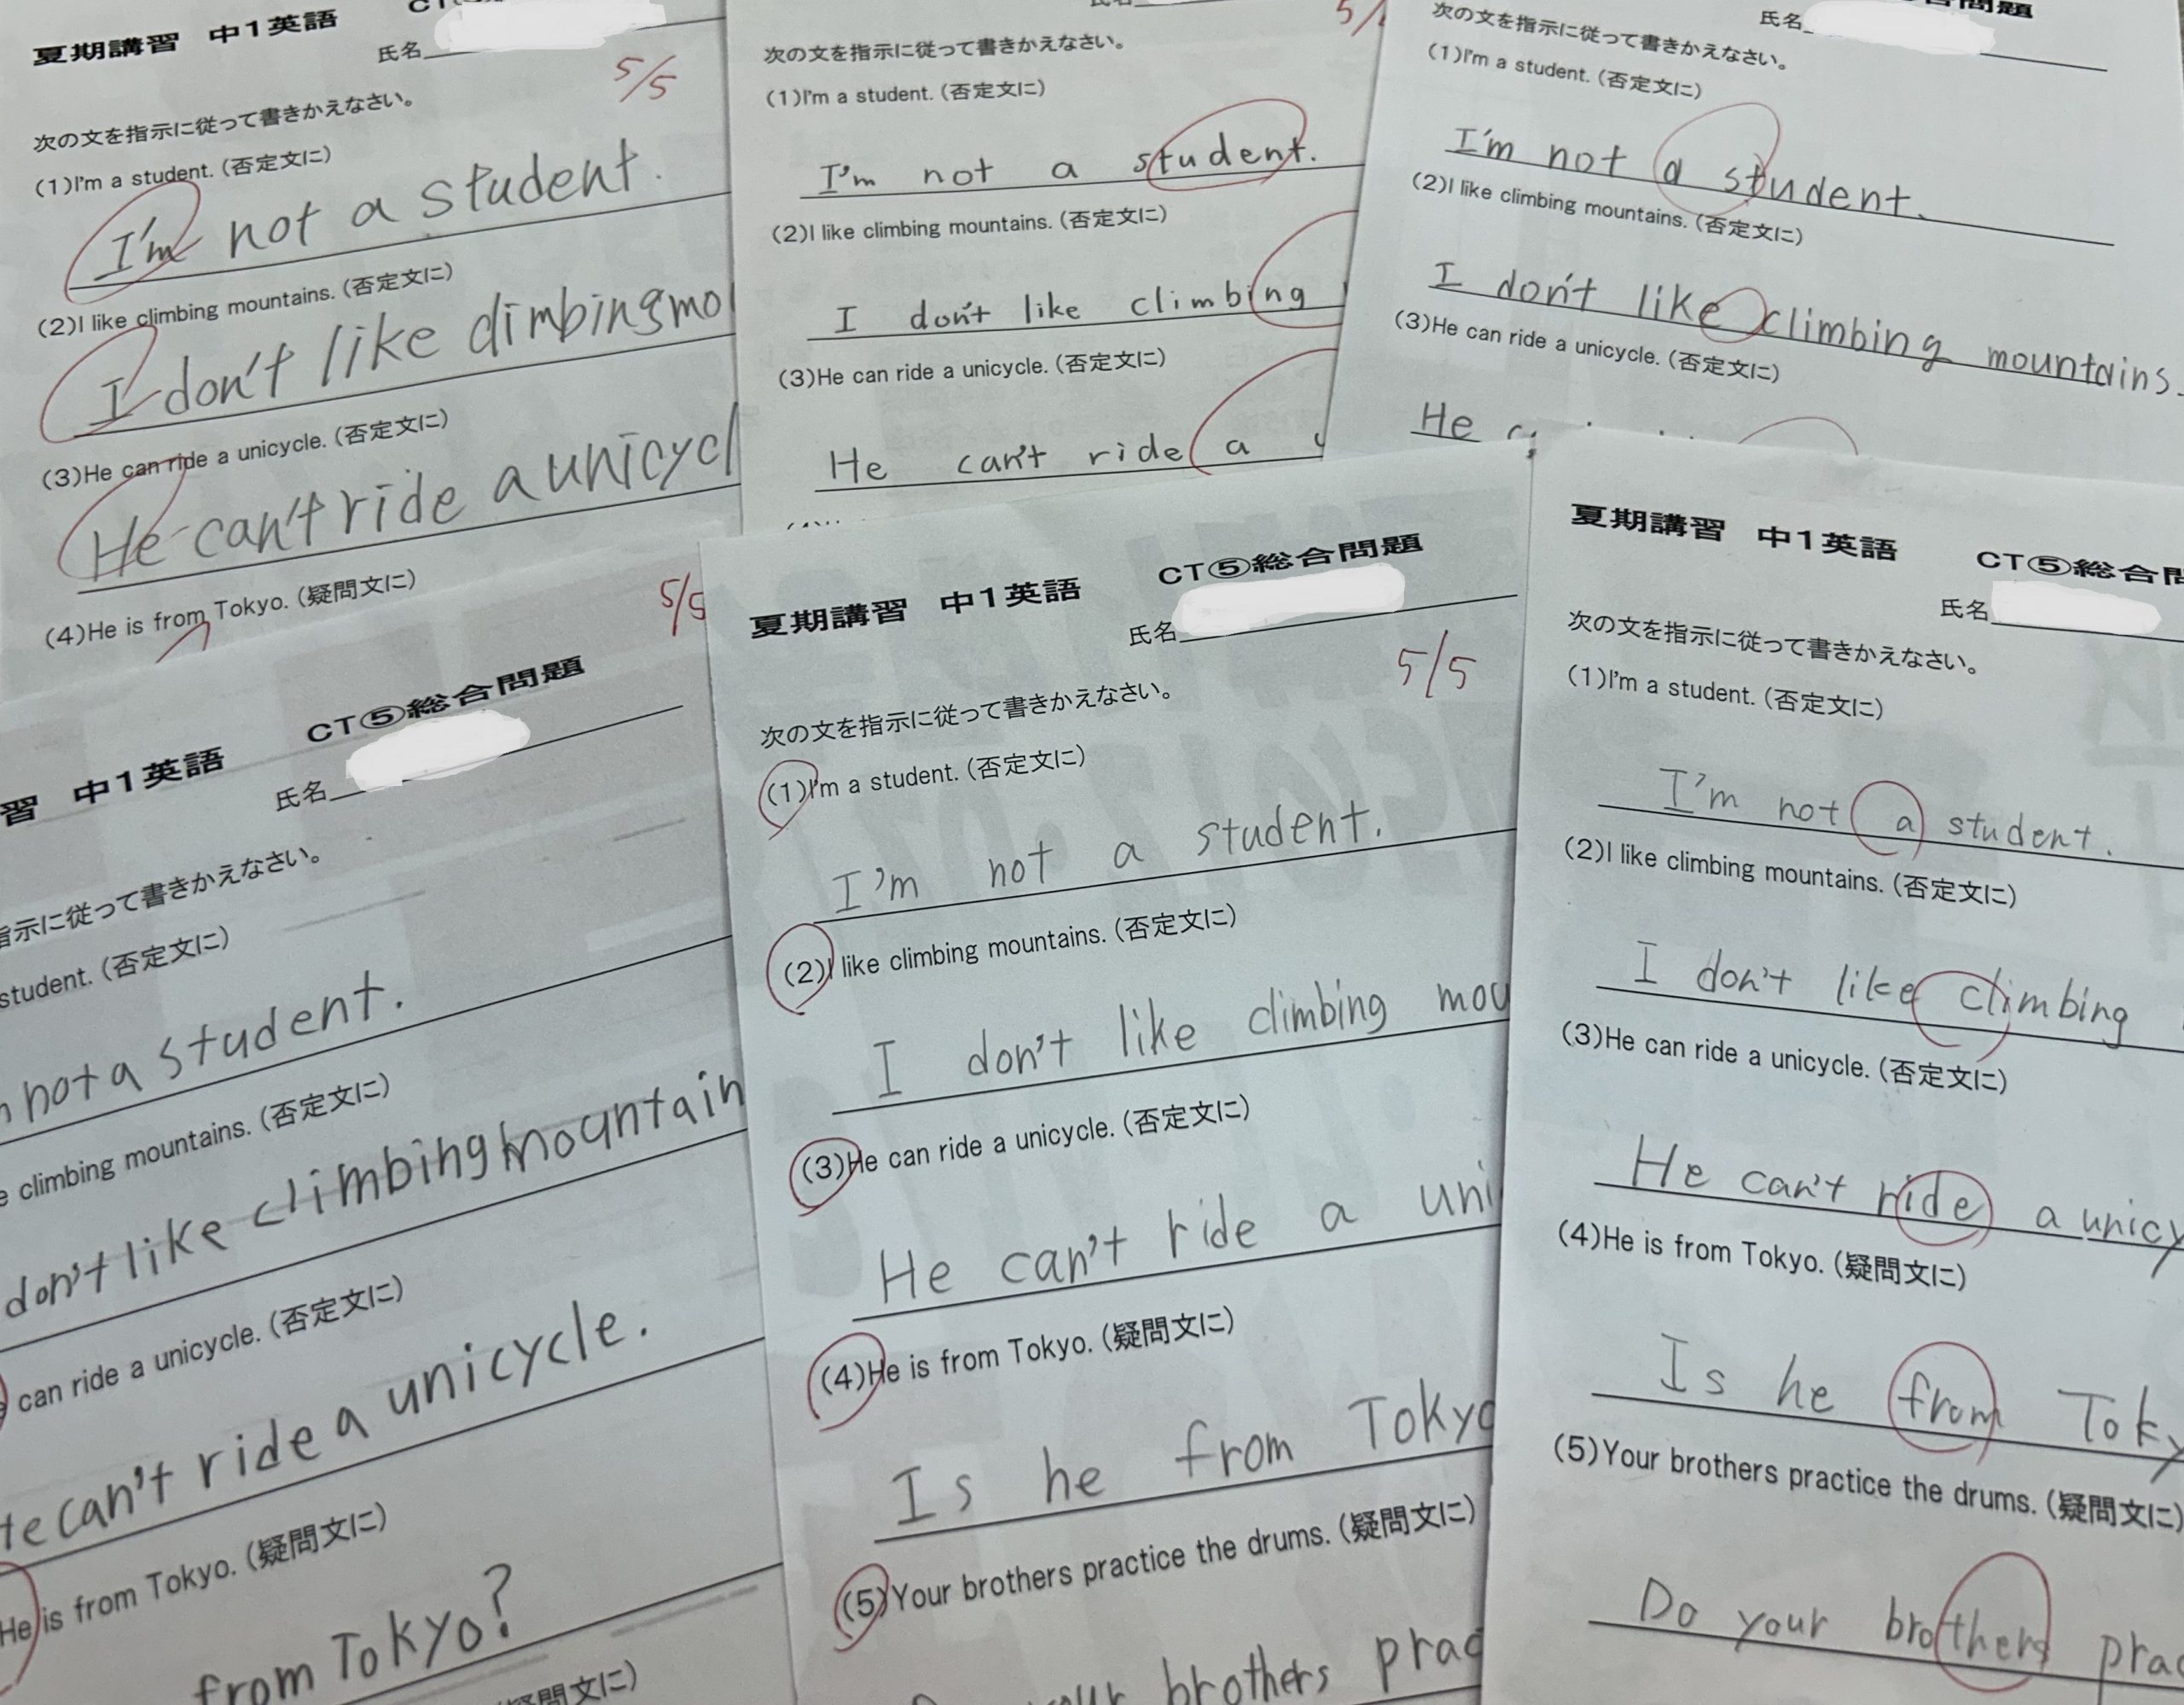 夏期講習 中1英語
氏名
5/5
次の文を指示に従って書きかえなさい。
(1)I'm a student. (否定文に)
I'm not a student.
(2)I like climbing mountains. (否定文に)
I don't like climbing
(3)He can ride a unicycle. (否定文に)
He can't ride a
(4)He is from Tokyo. (疑問文に)
次の文を指示に従って書きかえなさい。
(1)I'm a student. (否定文に)
I'm not a student.
(2)I like climbing mountains. (否定文に)
I don't like climbing
(3)He can ride a unicycle. (否定文に)
He can't ride a
氏名
次の文を指示に従って書きかえなさい。
(1)I'm a student. (否定文に)
I'm not a student.
(2)I like climbing mountains. (否定文に)
I don't like climbing mountains.
(3)He can ride a unicycle. (否定文に)
He
習 中1英語 CT⑤総合問題
氏名
5/5
指示に従って書きかえなさい。
student. (否定文に)
not a student.
climbing mountains. (否定文に)
don't like climbing mountain
can ride a unicycle. (否定文に)
He can't ride a unicycle.
He is from Tokyo. (疑問文に)
from Tokyo?
疑問文に)
夏期講習 中1英語 CT⑤総合問題
氏名
5/5
次の文を指示に従って書きかえなさい。
(1)I'm a student. (否定文に)
I'm not a student.
(2)I like climbing mountains. (否定文に)
I don't like climbing mou
(3)He can ride a unicycle. (否定文に)
He can't ride a uni
(4)He is from Tokyo. (疑問文に)
Is he from Tokyo
(5)Your brothers practice the drums. (疑問文に)
your brothers prac
夏期講習 中1英語 CT⑤総合問
氏名
次の文を指示に従って書きかえなさい。
(1)I'm a student. (否定文に)
I'm not a student.
(2)I like climbing mountains. (否定文に)
I don't like climbing
(3)He can ride a unicycle. (否定文に)
He can't ride a unicy
(4)He is from Tokyo. (疑問文に)
Is he from Toky
(5)Your brothers practice the drums. (疑問文に)
Do your brothers prac